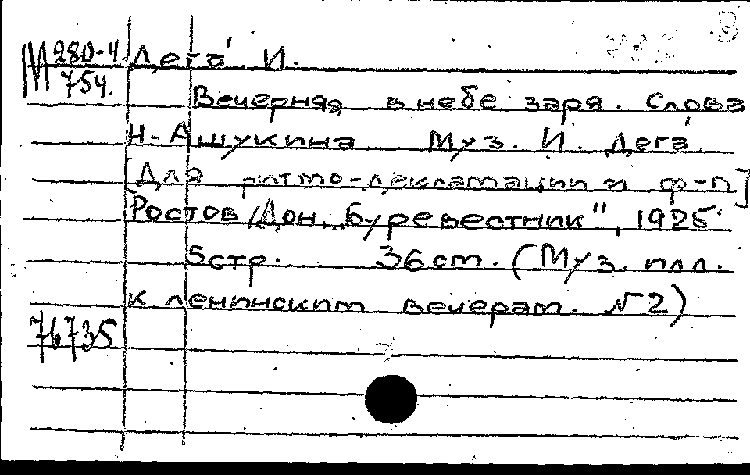 М 280-4 Дега́ И.
754.
Вечерняя в небе заря. Слова
Н. Ашукина Муз. И. Дега́.
[Для ритмо-декламации и ф-п]
Ростов/Дон. „Буревестник", 1925.
5 стр. 36 cm. (Муз. илл.
к ленинским вечерам. № 2)
76735